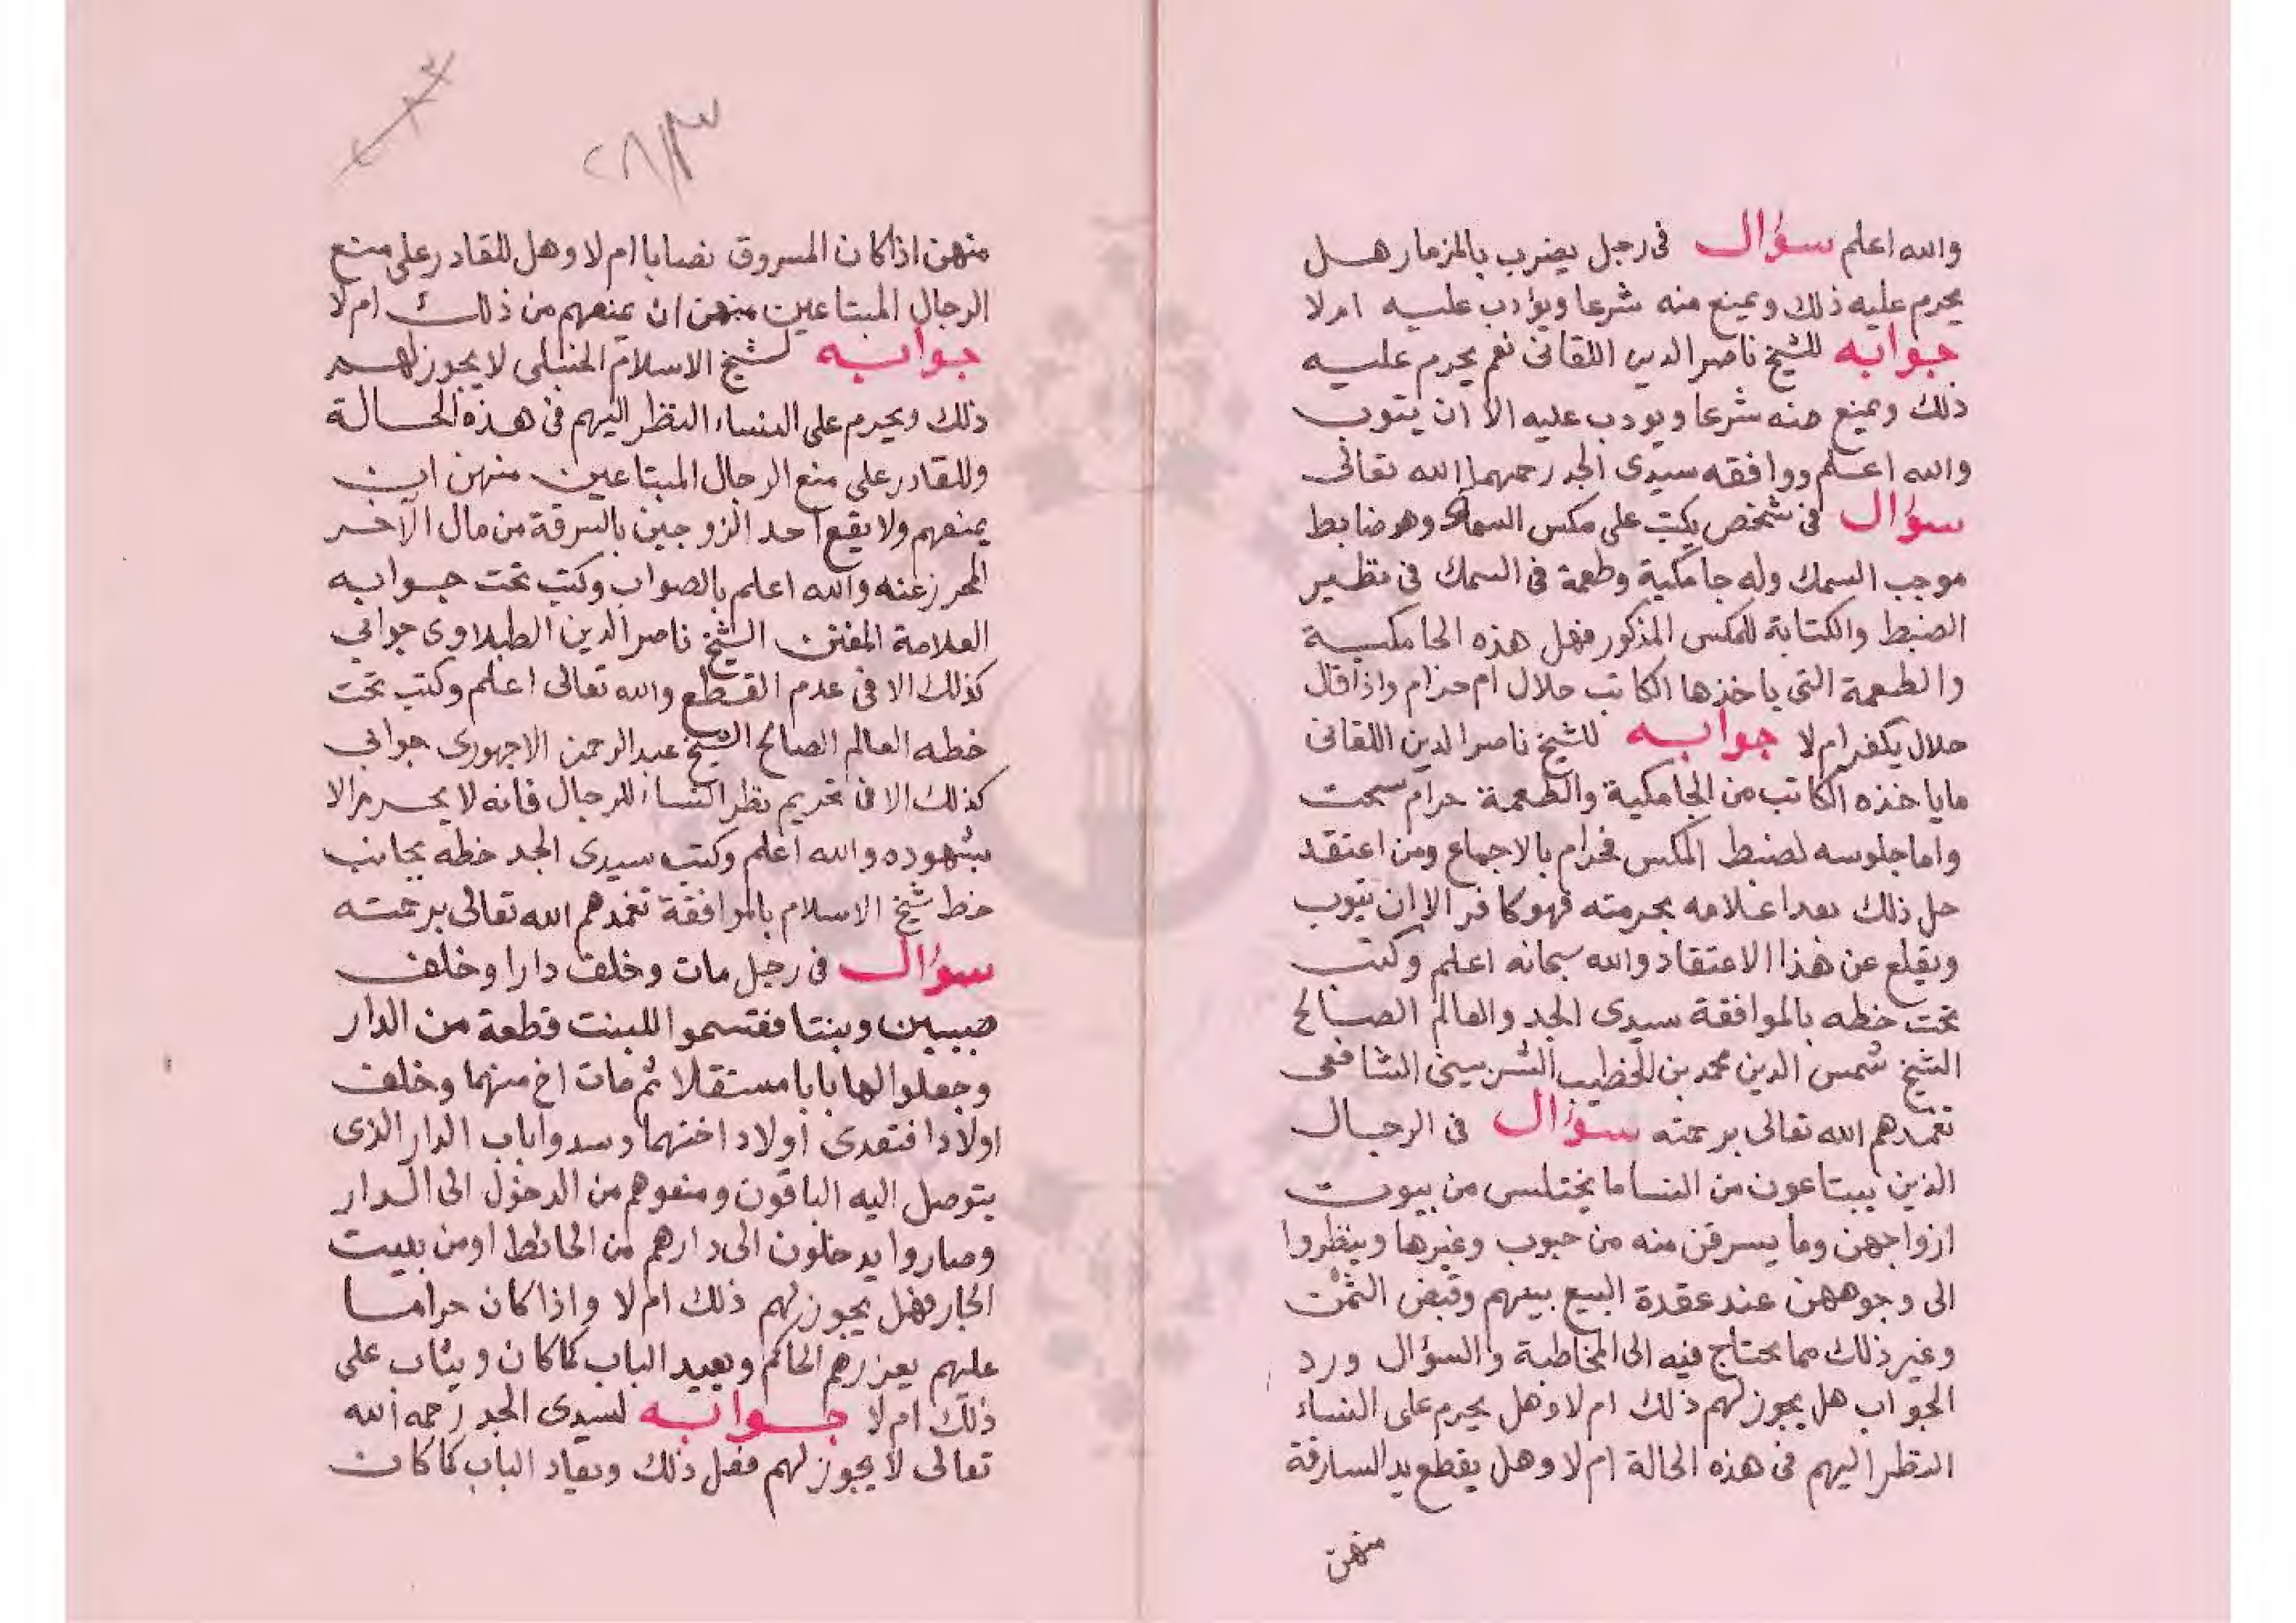 والله اعلم سؤال فى رجل يضرب بالمزمار هل
يحرم عليه ذلك ويمنع منه شرعا ويؤدب عليه ام لا
جوابه للشيخ ناصر الدين اللقانى نعم يحرم عليه
ذلك ويمنع منه شرعا ويودب عليه الا ان يتوب
والله اعلم ووافقه سيدى الجد رحمهما الله تعالى
سؤال فى شخص يكتب على مكس السمك وهو ضابط
موجب السمك وله جامكية وطعمة فى السمك فى نظير
الضبط والكتابة للمكس المذكور فهل هذه الجامكية
والطعمة التى ياخذها الكاتب حلال ام حرام واذا قال
حلال يكفر ام لا جوابه للشيخ ناصر الدين اللقانى
ما ياخذه الكاتب من الجامكية والطعمة حرام سحت
واما جلوسه لضبط المكس فحرام بالاجماع ومن اعتقد
حل ذلك بعد اعلامه بحرمته فهو كافر الا ان يتوب
ويقلع عن هذا الاعتقاد والله سبحانه اعلم وكتب
تحت خطه بالموافقة سيدى الجد والعالم الصالح
الشيخ شمس الدين محمد بن الخطيب الشربينى الشافعى
تغمدهم الله تعالى برحمته سؤال فى الرجال
الذين يبتاعون من النسا ما يختلس من بيوت
ازواجهن وما يسرقن منه من حبوب وغيرها وينظروا
الى وجوههن عند عقدة البيع بينهم وقبض الثمن
وغير ذلك مما يحتاج فيه الى المخاطبة والسؤال ورد
الجواب هل يجوز لهم ذلك ام لا وهل يحرم على النساء
النظر اليهم فى هذه الحالة ام لا وهل يقطع يد السارقة
منهن
٢٨/٣
منهن اذا كان المسروق نصابا ام لا وهل للقادر على منع
الرجال المبتاعين منهن ان يمنعهم من ذلك ام لا
جوابه لشيخ الاسلام الحنبلى لا يجوز لهم
ذلك ويحرم على النساء النظر اليهم فى هذه الحالة
وللقادر على منع الرجال المبتاعين منهن ان
يمنعهم ولا يقع احد الزوجين بالسرقة من مال الآخر
المحرز عنه والله اعلم بالصواب وكتب تحت جوابه
العلامة المفنن الشيخ ناصر الدين الطبلاوى جوابي
كذلك الا فى عدم القطع والله تعالى اعلم وكتب تحت
خطه العالم الصالح الشيخ عبد الرحمن الاجهورى جوابي
كذلك الا فى تحريم نظر النساء للرجال فانه لا يحرم الا
بشهوده والله اعلم وكتب سيدى الجد خطه بجانب
خط شيخ الاسلام بالموافقة تغمدهم الله تعالى برحمته
سؤال فى رجل مات وخلف دارا وخلف
صبيين وبنتا فقتسموا للبنت قطعة من الدار
وجعلوا لها بابا مستقلا ثم مات اخ منهما وخلف
اولادا فتعدى اولاد اختهما وسدوا باب الدار الذى
يتوصل اليه الباقون ومنعوهم من الدخول الى الدار
وصاروا يدخلون الى دارهم من الحائط او من بيت
الجار فهل يجوز لهم ذلك ام لا واذا كان حراما
عليهم يعزرهم الحاكم ويعيد الباب كما كان ويثاب على
ذلك ام لا جوابه لسيدى الجد رحمه الله
تعالى لا يجوز لهم فعل ذلك ويعاد الباب كما كان